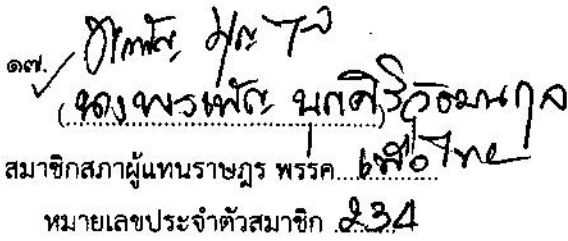 ๑๗.
(นางพรเพ็ญ บุญศิริวัฒนกุล)
สมาชิกสภาผู้แทนราษฎร พรรค เพื่อไทย
หมายเลขประจำตัวสมาชิก 234